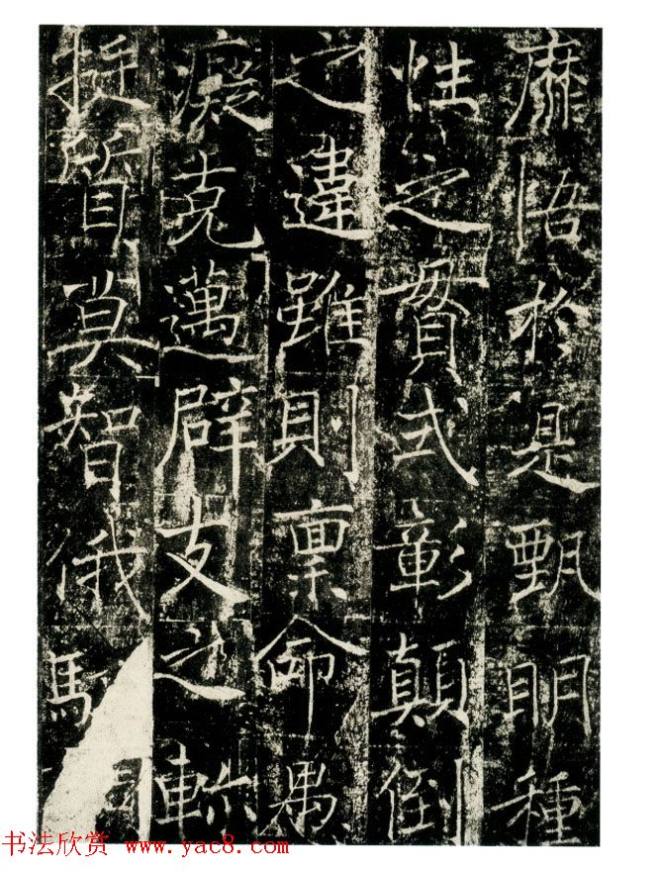 靡悟於是甄明種
性之貫式彰顛倒
之違雖則稟命愚
癡克邁辟支之軫
挺質莫智俄
书法欣赏 www.yac8.com